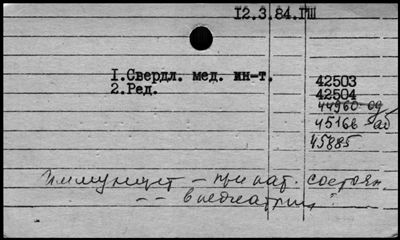 12.3.84.ГШ
1.Свердл. мед. ин-т.
2.Ред.
42503
42504
44960-од
45166-аб
45885
Иммунитет - при пат. состоян
-"- в педиатрии